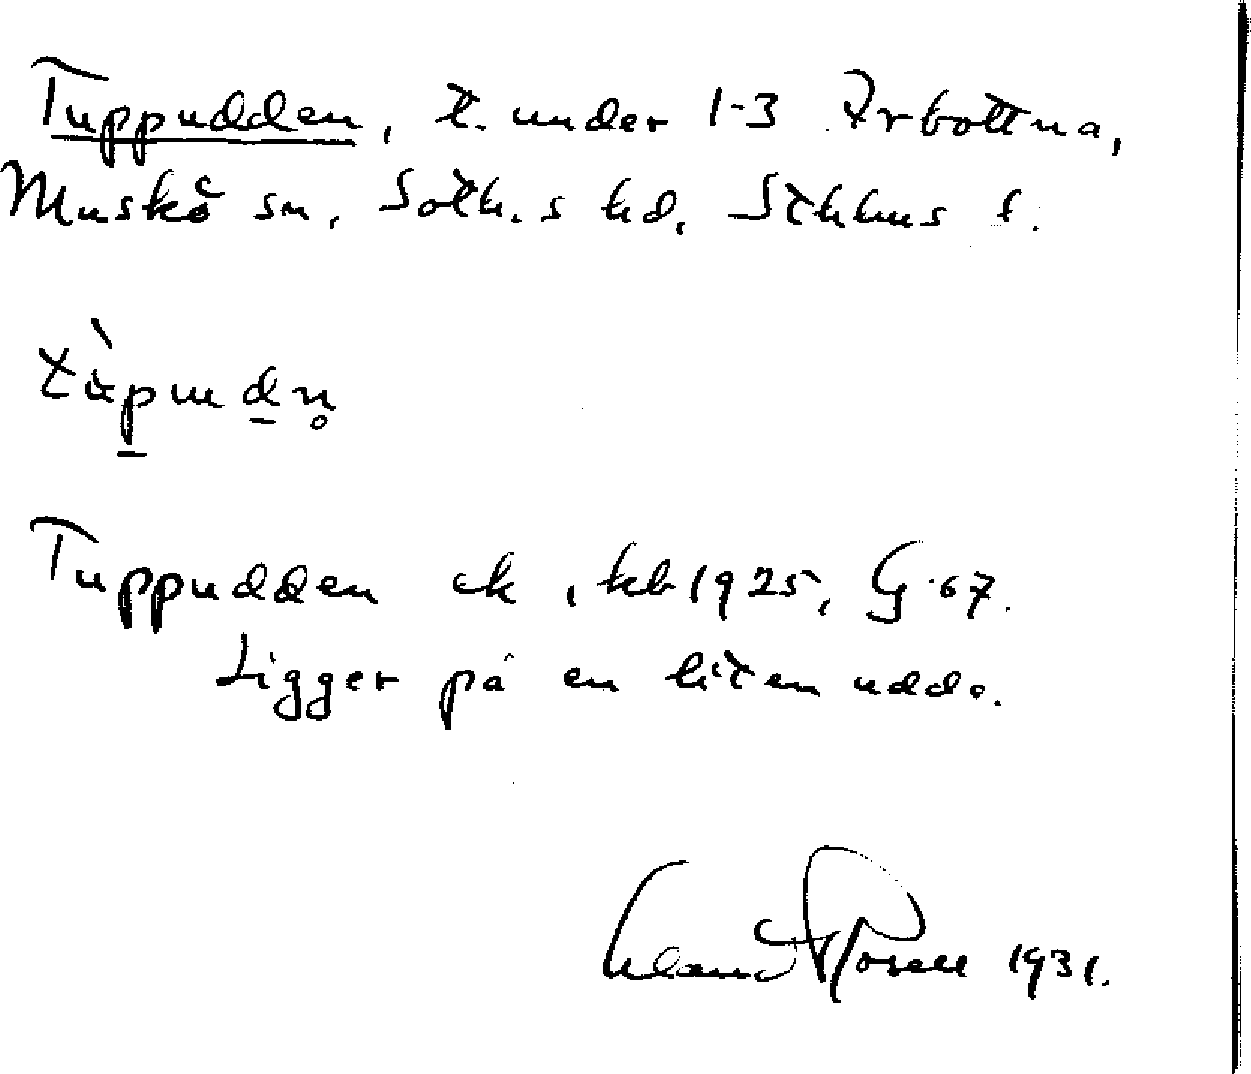 Tuppudden, t. under 1-3 Arbottna,
Muskö sn, Soth.s hd, Sthlms l.
Tuppudden ek, kb 1925, G 67.
Ligger på en liten udde.
1931.